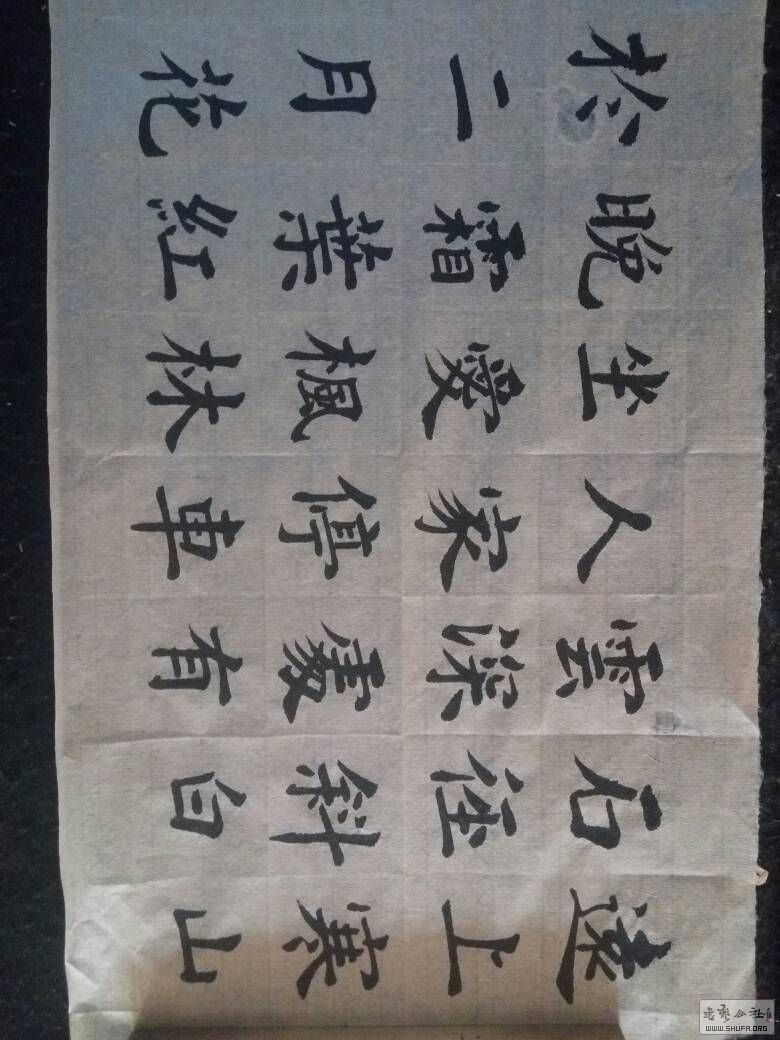 遠上寒山
石徑斜白
雲深處有
人家停車
坐愛楓林
晚霜葉紅
於二月花
書藝公社
WWW.SHUFA.ORG